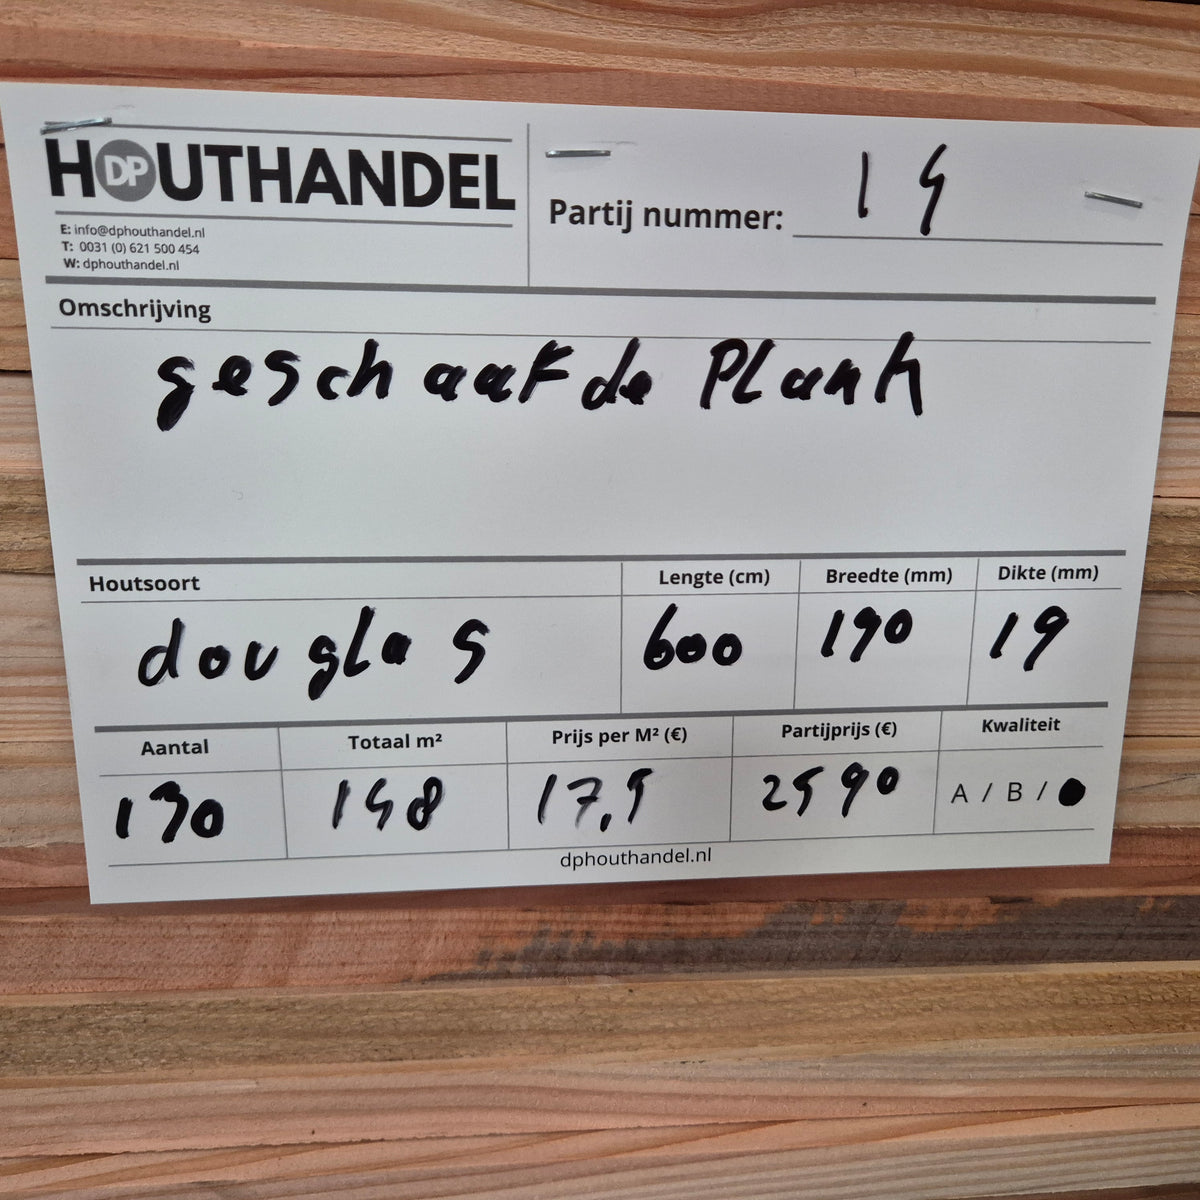 HOUTHANDEL
DP
E: info@dphouthandel.nl
T: 0031 (0) 621 500 454
W: dphouthandel.nl
Partij nummer: 14
Omschrijving
geschaafde Plank
Houtsoort
Lengte (cm)
Breedte (mm)
Dikte (mm)
douglas
600
190
19
Aantal
Totaal m²
Prijs per M² (€)
Partijprijs (€)
Kwaliteit
130
148
17,5
2590
A / B /
dphouthandel.nl